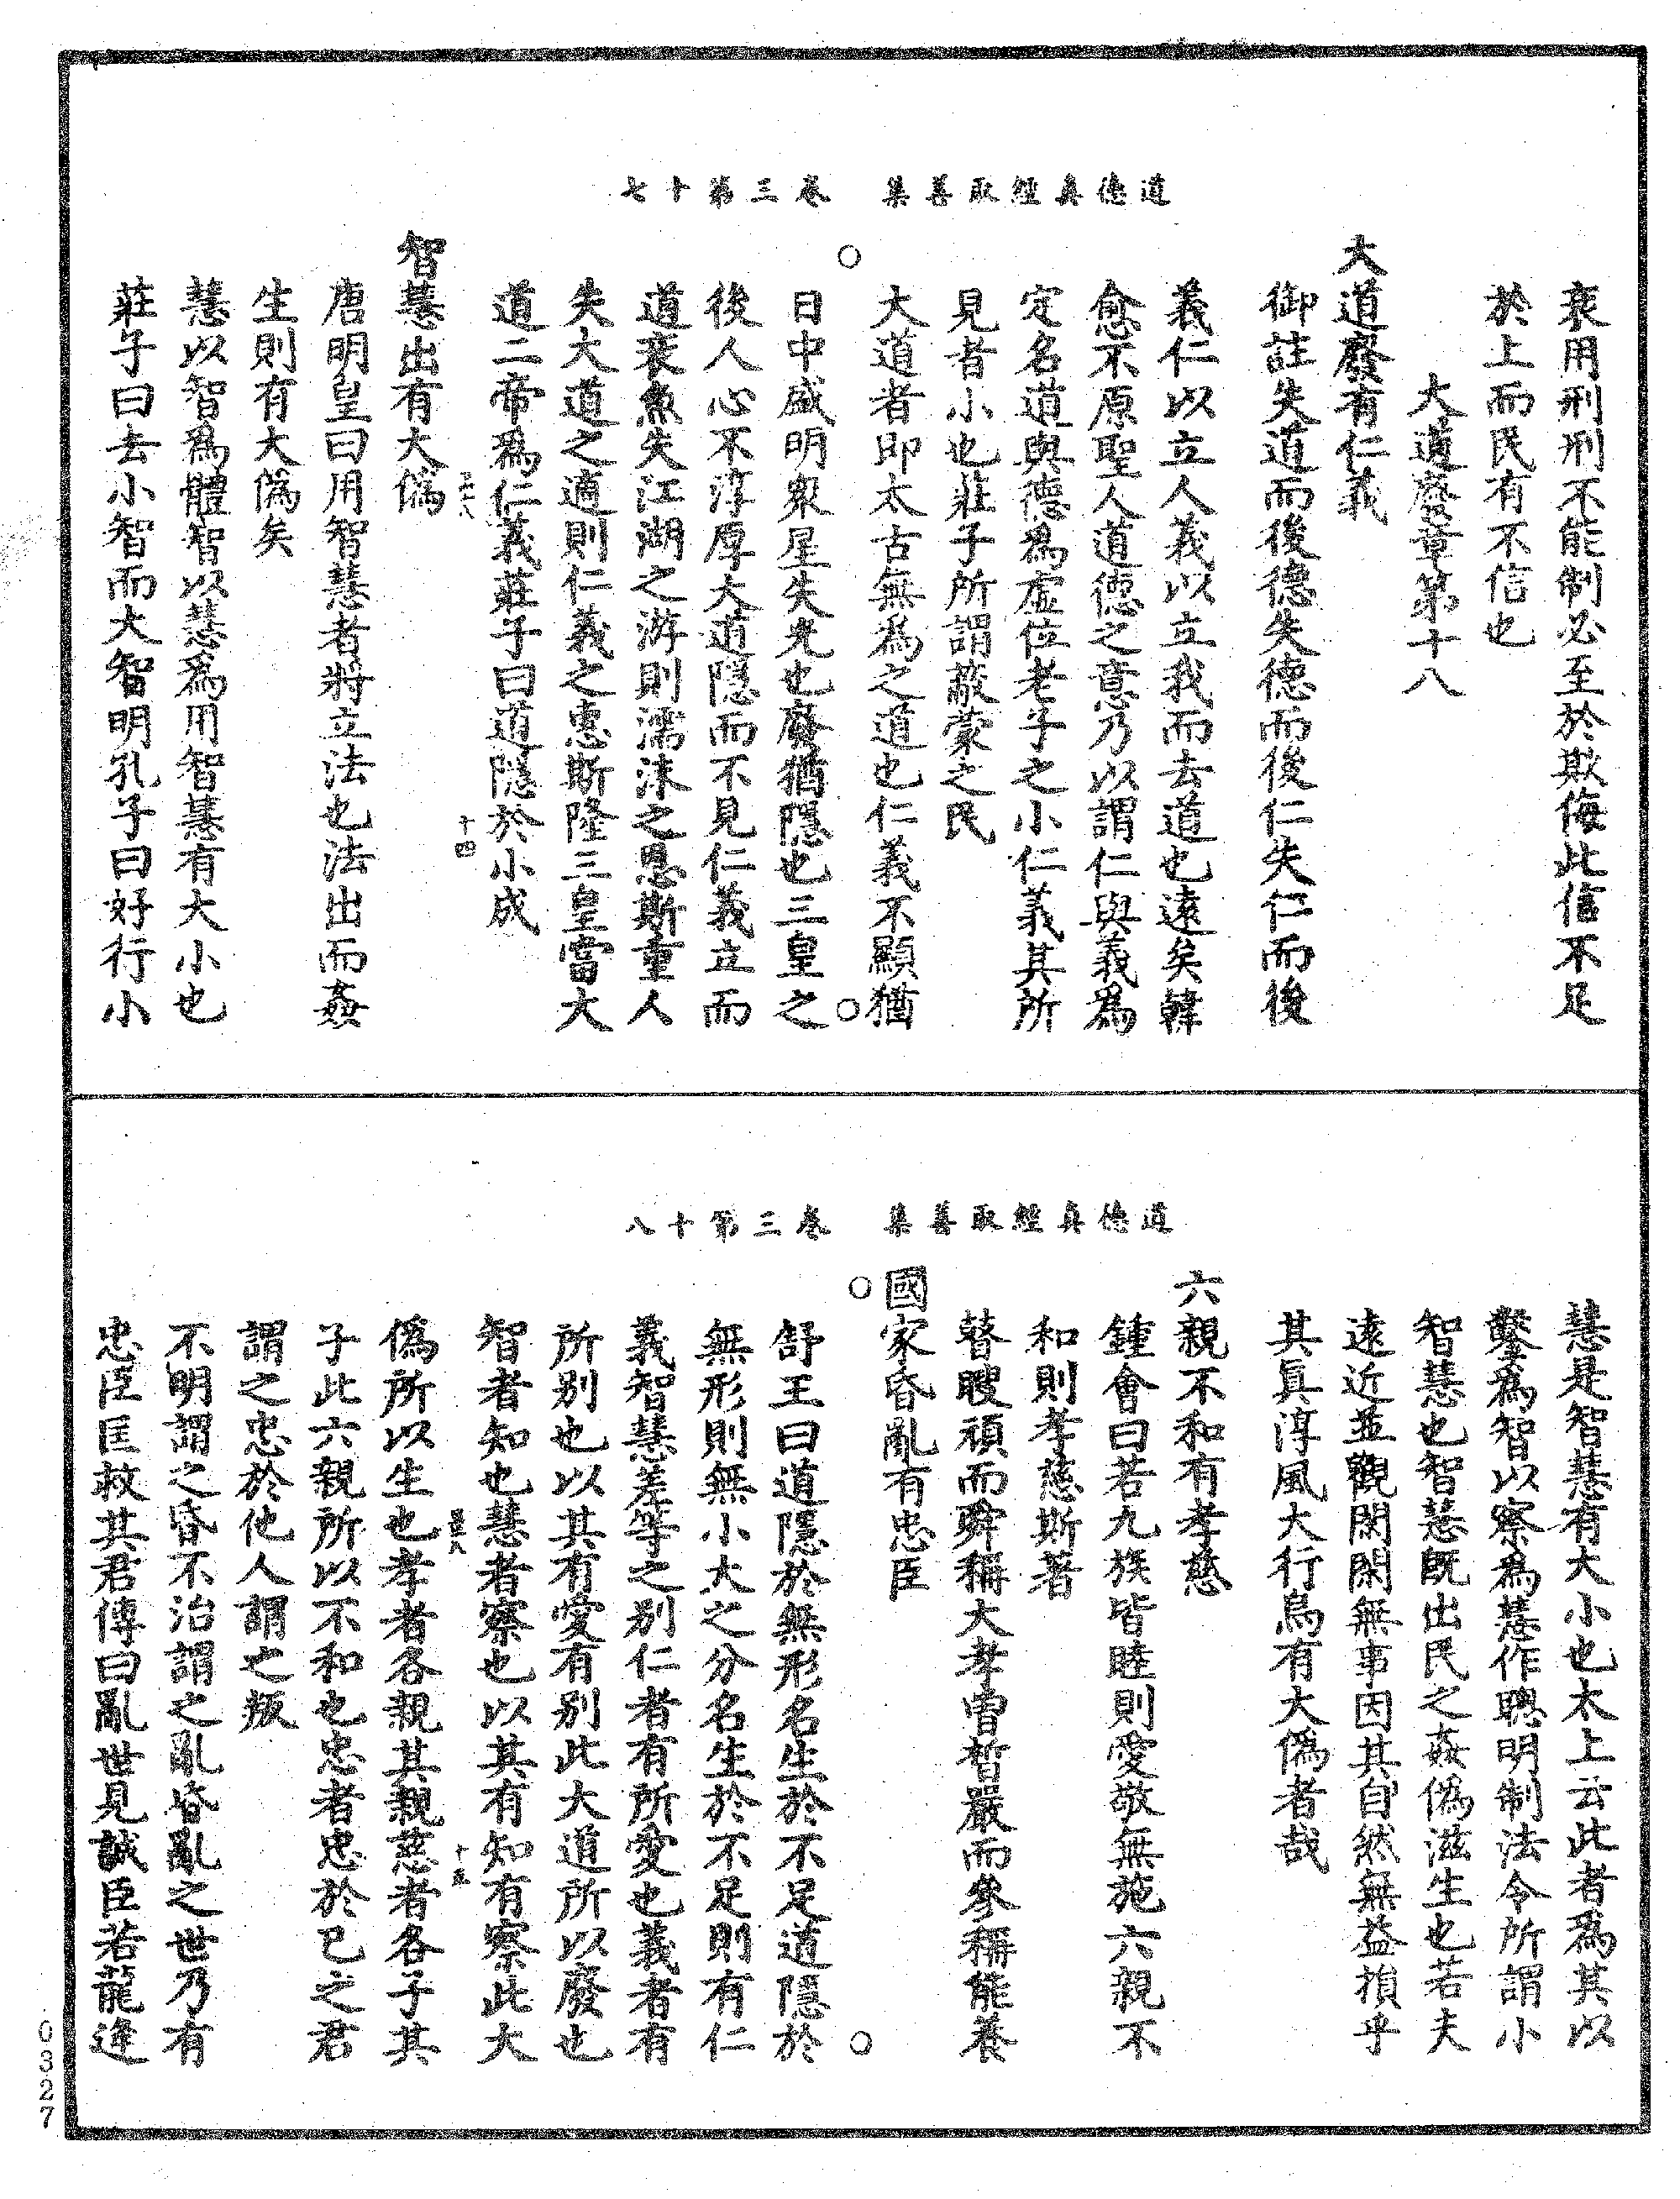 道德真經取善集　卷三第十七
衰用刑刑不能制必至於欺侮此信不足
於上而民有不信也
大道廢章第十八
大道廢有仁義
御註失道而後德失德而後仁失仁而後
義仁以立人義以立我而去道也遠矣韓
愈不原聖人道德之意乃以謂仁與義爲
定名道與德爲虛位老子之小仁義其所
見者小也莊子所謂蔽蒙之民
大道者即太古無爲之道也仁義不顯猶
日中盛明衆星失光也廢猶隱也三皇之
後人心不淳厚大道隱而不見仁義立而
道衰魚失江湖之游則濡沫之恩斯重人
失大道之適則仁義之惠斯隆三皇當大
道二帝爲仁義莊子曰道隱於小成
十四
智慧出有大僞
唐明皇曰用智慧者將立法也法出而姦
生則有大僞矣
慧以智爲體智以慧爲用智慧有大小也
莊子曰去小智而大智明孔子曰好行小
道德真經取善集　卷三第十八
慧是智慧有大小也太上云此者爲其以
鑿爲智以察爲慧作聰明制法令所謂小
智慧也智慧旣出民之姦僞滋生也若夫
遠近並觀閑閑無事因其自然無益損乎
其眞淳風大行烏有大僞者哉
六親不和有孝慈
鍾會曰若九族皆睦則愛敬無施六親不
和則孝慈斯著
瞽瞍頑而舜稱大孝曾晳嚴而參稱能養
國家昏亂有忠臣
舒王曰道隱於無形名生於不足道隱於
無形則無小大之分名生於不足則有仁
義智慧差等之别仁者有所愛也義者有
所别也以其有愛有别此大道所以廢也
智者知也慧者察也以其有知有察此大
十五
僞所以生也孝者各親其親慈者各子其
子此六親所以不和也忠者忠於己之君
謂之忠於他人謂之叛
不明謂之昏不治謂之亂昏亂之世乃有
忠臣匡救其君傳曰亂世見誠臣若龍逢
0327